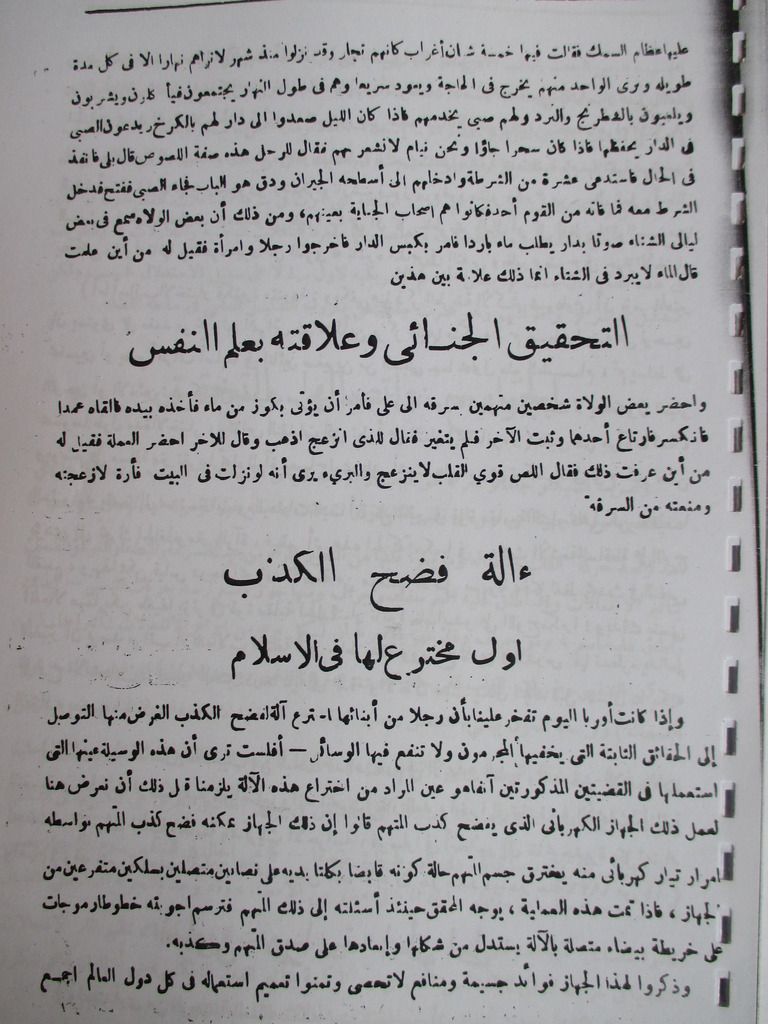 عليها عظام السمك فقالت فيها خمسة شبان أغراب كانهم تجار وقد نزلوا منذ شهر لانراهم نهارا الا فى كل مدة
طويله ونرى الواحد منهم يخرج فى الحاجة ويعود سريعا وهم فى طول النهار يجتمعون فيأكلون ويشربون
ويلعبون بالشطرنج والنرد ولهم صبى يخدمهم فاذا كان الليل صعدوا الى دار لهم بالكرخ ويدعون الصبى
فى الدار يحفظها فاذا كان سحرا جاؤا ونحن نيام لانشعر بهم فقال للرجل هذه صفة اللصوص قال بلى فانفذ
فى الحال فاستدعى عشرة من الشرطة وادخلهم الى أسطحه الجيران ودق هو الباب فجاء الصبى ففتح فدخل
الشرط معه فما فاته من القوم أحد فكانوا هم اصحاب الجناية بعينهم، ومن ذلك أن بعض الولاه سمع فى بعض
ليالى الشتاء صوتا بدار يطلب ماء باردا فامر بكبس الدار فاخرجوا رجلا وامرأة فقيل له من أين علمت
قال الماء لايبرد فى الشتاء انما ذلك علامة بين هذين
التحقيق الجنائى وعلاقته بعلم النفس
واحضر بعض الولاة شخصين متهمين بسرقه الى على فأمر أن يؤتى بكوز من ماء فأخذه بيده فالقاه عمدا
فانكسر فارتاع أحدهما وثبت الآخر فلم يتغير فقال للذى انزعج اذهب وقال للآخر احضر العملة فقيل له
من أين عرفت ذلك فقال اللص قوي القلب لاينزعج والبريء يرى أنه لو نزلت فى البيت فأرة لازعجته
ومنعته من السرقة
ءالة فضح الكذب
اول مخترع لها فى الاسلام
وإذا كانت أوربا اليوم تفخر علينا بأن رجلا من أبنائها اخترع آلة لفضح الكذب الغرض منها التوصل
إلى الحقائق الثابتة التى يخفيها المجرمون ولا تنفع فيها الوسائل — أفلست ترى أن هذه الوسيلة عينها التى
استعملها فى القضيتين المذكورتين آنفا هو عين المراد من اختراع هذه الآلة يلزمنا قبل ذلك أن نعرض هنا
لعمل ذلك الجهاز الكهربائى الذى يفضح كذب المتهم قالوا إن ذلك الجهاز يمكنه فضح كذب المتهم بواسطه
امرار تيار كهربائى منه يخترق جسم المتهم حالة كونه قابضا بكلتا يديه على نصابين متصلين بسلكين متفرعين من
الجهاز، فاذا تمت هذه العملية، يوجه المحقق حينئذ أسئلته إلى ذلك المتهم فترسم اجوبته خطوطا رموجات
على خريطة بيضاء متصلة بالآلة يستدل من شكلها وإبعادها على صدق المتهم وكذبه.
وذكروا لهذا الجهاز فوائد جسيمة ومنافع لاتحصى وتمنوا تعميم استعماله فى كل دول العالم اجمع